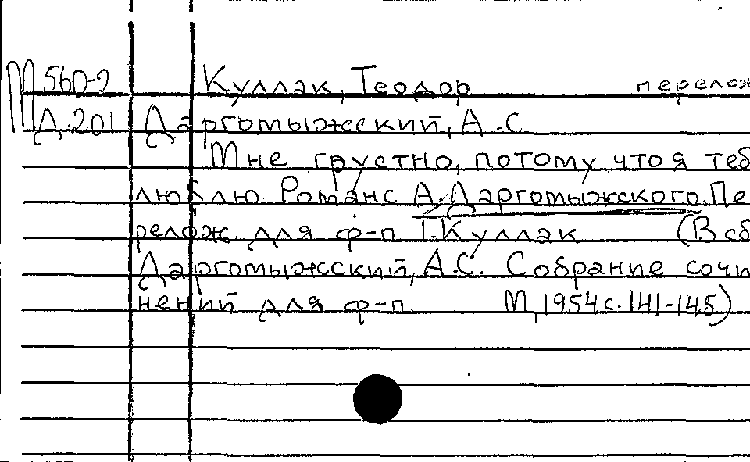 М 560-2 Куллак, Теодор перелож
Д-201 Даргомыжский, А.С.
Мне грустно, потому что я теб
люблю. Романс А. Даргомыжского. Пе
релож. для ф-п Т. Куллак (В сб
Даргомыжский, А.С. Собрание сочи
нений для ф-п М, 1954 с. 141-145)